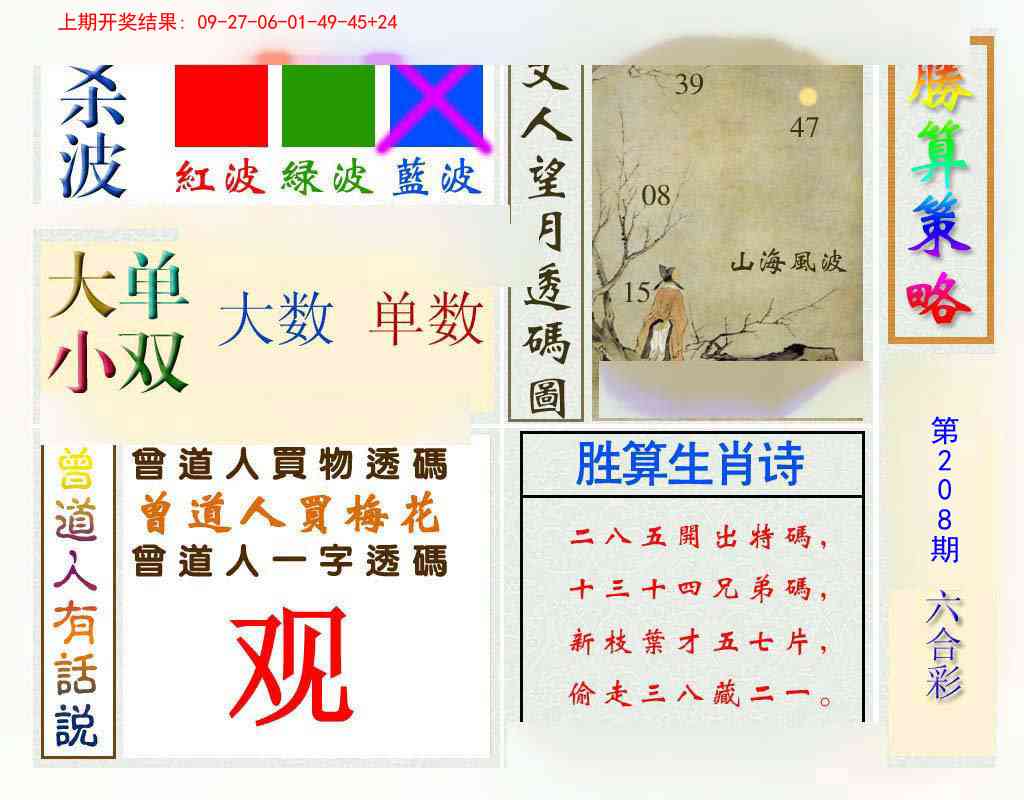 上期开奖结果: 09-27-06-01-49-45+24
杀波
紅波 緑波 藍波
大单
小双
大数 单数
文人望月透碼圖
39
47
08
15
山海風波
勝算策略
曾道人有話説
曾道人買物透碼
曾道人買梅花
曾道人一字透碼
观
胜算生肖诗
二八五開出特碼,
十三十四兄弟碼,
新枝葉才五七片,
偷走三八藏二一。
第208期
六合彩